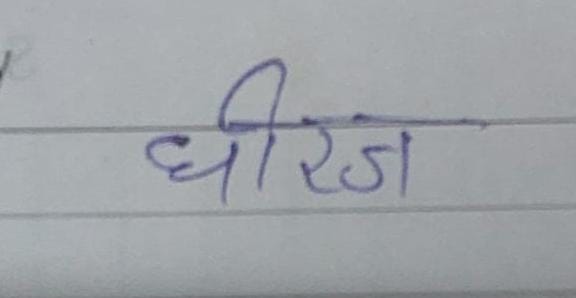 धीरज